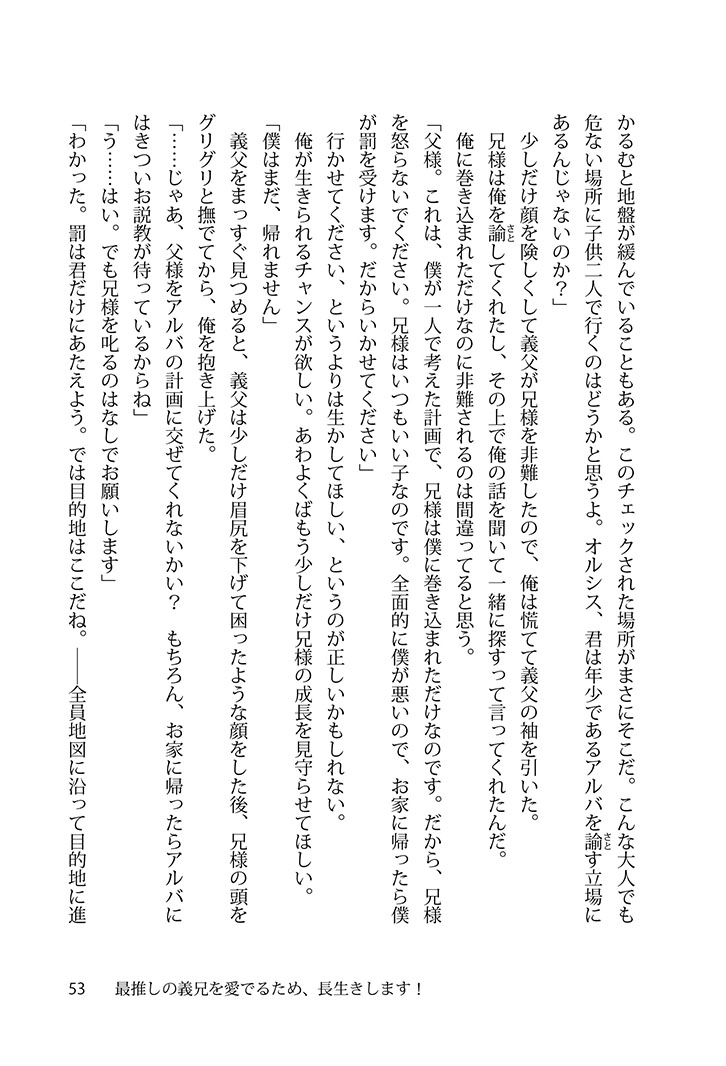 かるむと地盤が緩んでいることもある。このチェックされた場所がまさにそこだ。こんな大人でも
危ない場所に子供二人で行くのはどうかと思うよ。オルシス、君は年少であるアルバを諭す立場に
あるんじゃないのか？」
　少しだけ顔を険しくして義父が兄様を非難したので、俺は慌てて義父の袖を引いた。
　兄様は俺を諭してくれたし、その上で俺の話を聞いて一緒に探すって言ってくれたんだ。
　俺に巻き込まれただけなのに非難されるのは間違ってると思う。
「父様。これは、僕が一人で考えた計画で、兄様は僕に巻き込まれただけなのです。だから、兄様
を怒らないでください。兄様はいつもいい子なのです。全面的に僕が悪いので、お家に帰ったら僕
が罰を受けます。だからいかせてください」
　行かせてください、というよりは生かしてほしい、というのが正しいかもしれない。
　俺が生きられるチャンスが欲しい。あわよくばもう少しだけ兄様の成長を見守らせてほしい。
「僕はまだ、帰れません」
　義父をまっすぐ見つめると、義父は少しだけ眉尻を下げて困ったような顔をした後、兄様の頭を
グリグリと撫でてから、俺を抱き上げた。
「……じゃあ、父様をアルバの計画に交ぜてくれないかい？　もちろん、お家に帰ったらアルバに
はきついお説教が待っているからね」
「う……はい。でも兄様を叱るのはなしでお願いします」
「わかった。罰は君だけにあたえよう。では目的地はここだね。――全員地図に沿って目的地に進
53　最推しの義兄を愛でるため、長生きします！